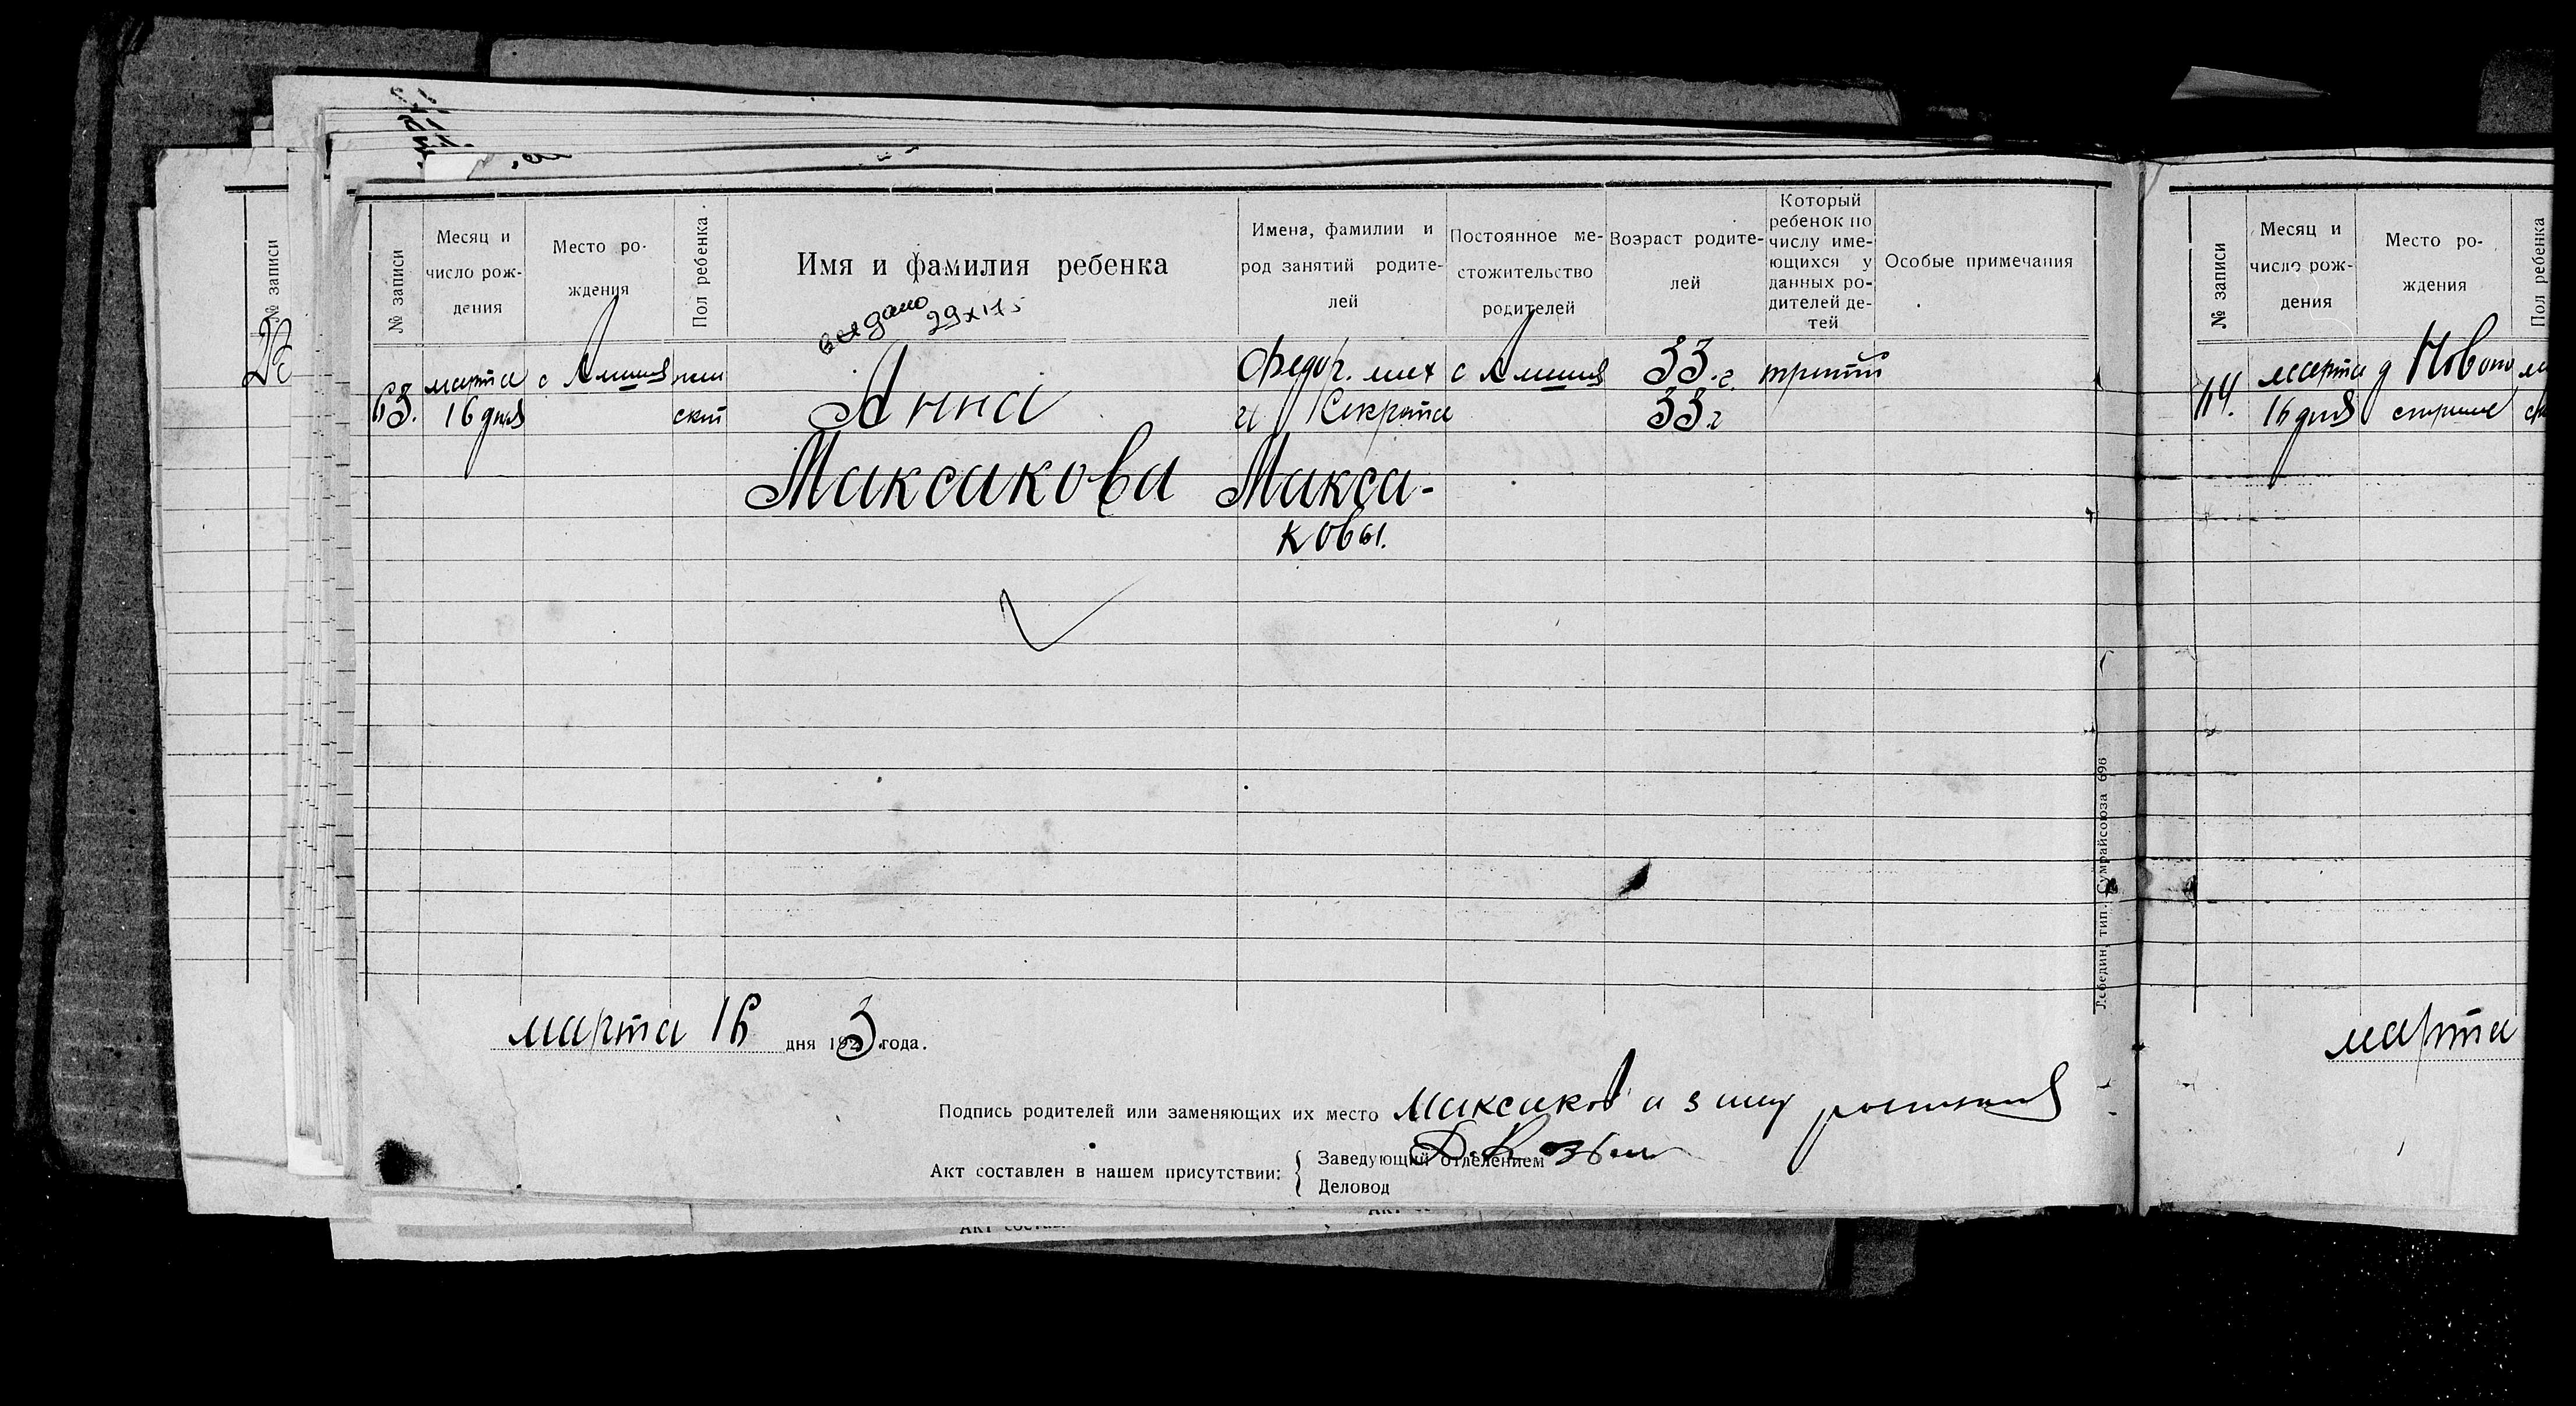 № записи
Месяц и число рождения
Место рождения
Пол ребенка
Имя и фамилия ребенка
Имена, фамилии и род занятий родителей
Постоянное местожительство родителей
Возраст родителей
Который ребенок по числу имеющихся у данных родителей детей
Особые примечания
29 X
63. марта 16 дня с жен ский Анна Максакова
Федор. и Максаковы. с 33.г. 33.г третий
марта 16 дня 1923 года.
Подпись родителей или заменяющих их место Максаков
Акт составлен в нашем присутствии: { Заведующий отделением
Деловод
Лебедин, тип. Сумрайсоюза 696
№ записи
№ записи
Месяц и число рождения
Место рождения
Пол ребенка
марта 16 дня д
марта